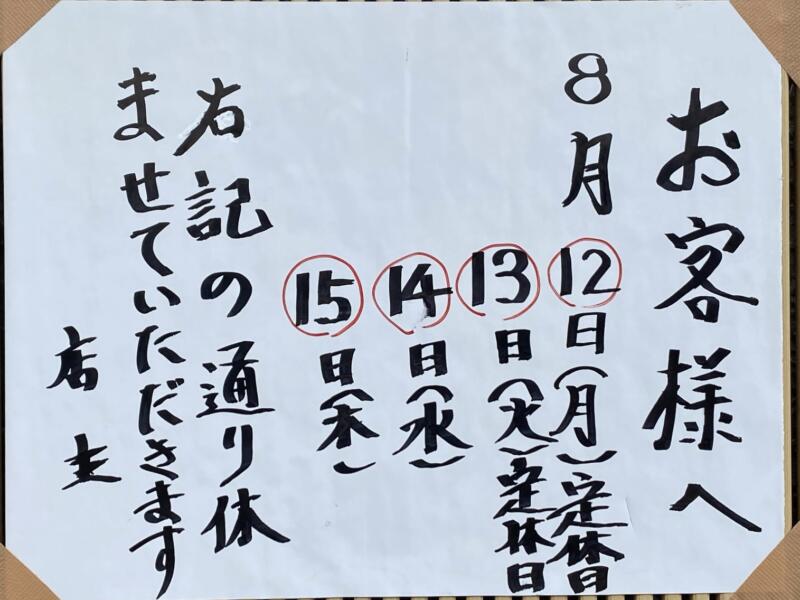 お客様へ
8月12日(月)定休日
13日(火)定休日
14日(水)
15日(木)
右記の通り休
ませていただきます
店主